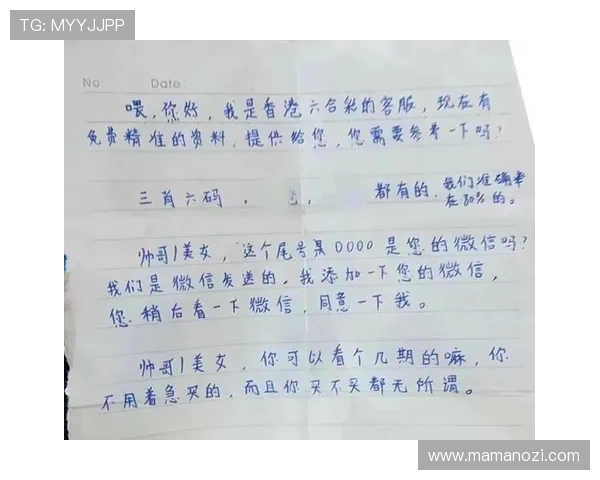 TG: MYYJJPP
No:
Date:
喂,你好,我是香港六合彩的客服,现在有
免费精准的资料,提供给您,您需要参考一下吗?
三肖六码, , 都有的,我们准确率
在80%的。
帅哥/美女,这个尾号是0000是您的微信吗?
我们是微信发送的,我添加一下您的微信,
您稍后看一下微信,同意一下我。
帅哥/美女,你可以看个几期的嘛,你
不用着急买的,而且你买不买都无所谓。
www.mamanozi.com